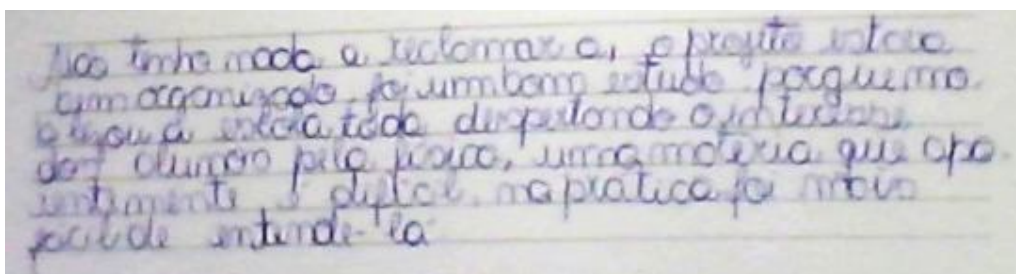 Não tinha nada a reclamar a, o projeto estava
bem organizado, foi um bom estudo porque mo
a escola toda despertando o interesse
dos alunos pela física, uma matéria que apa
rentemente é difícil, na prática foi mais
fácil de entende-la